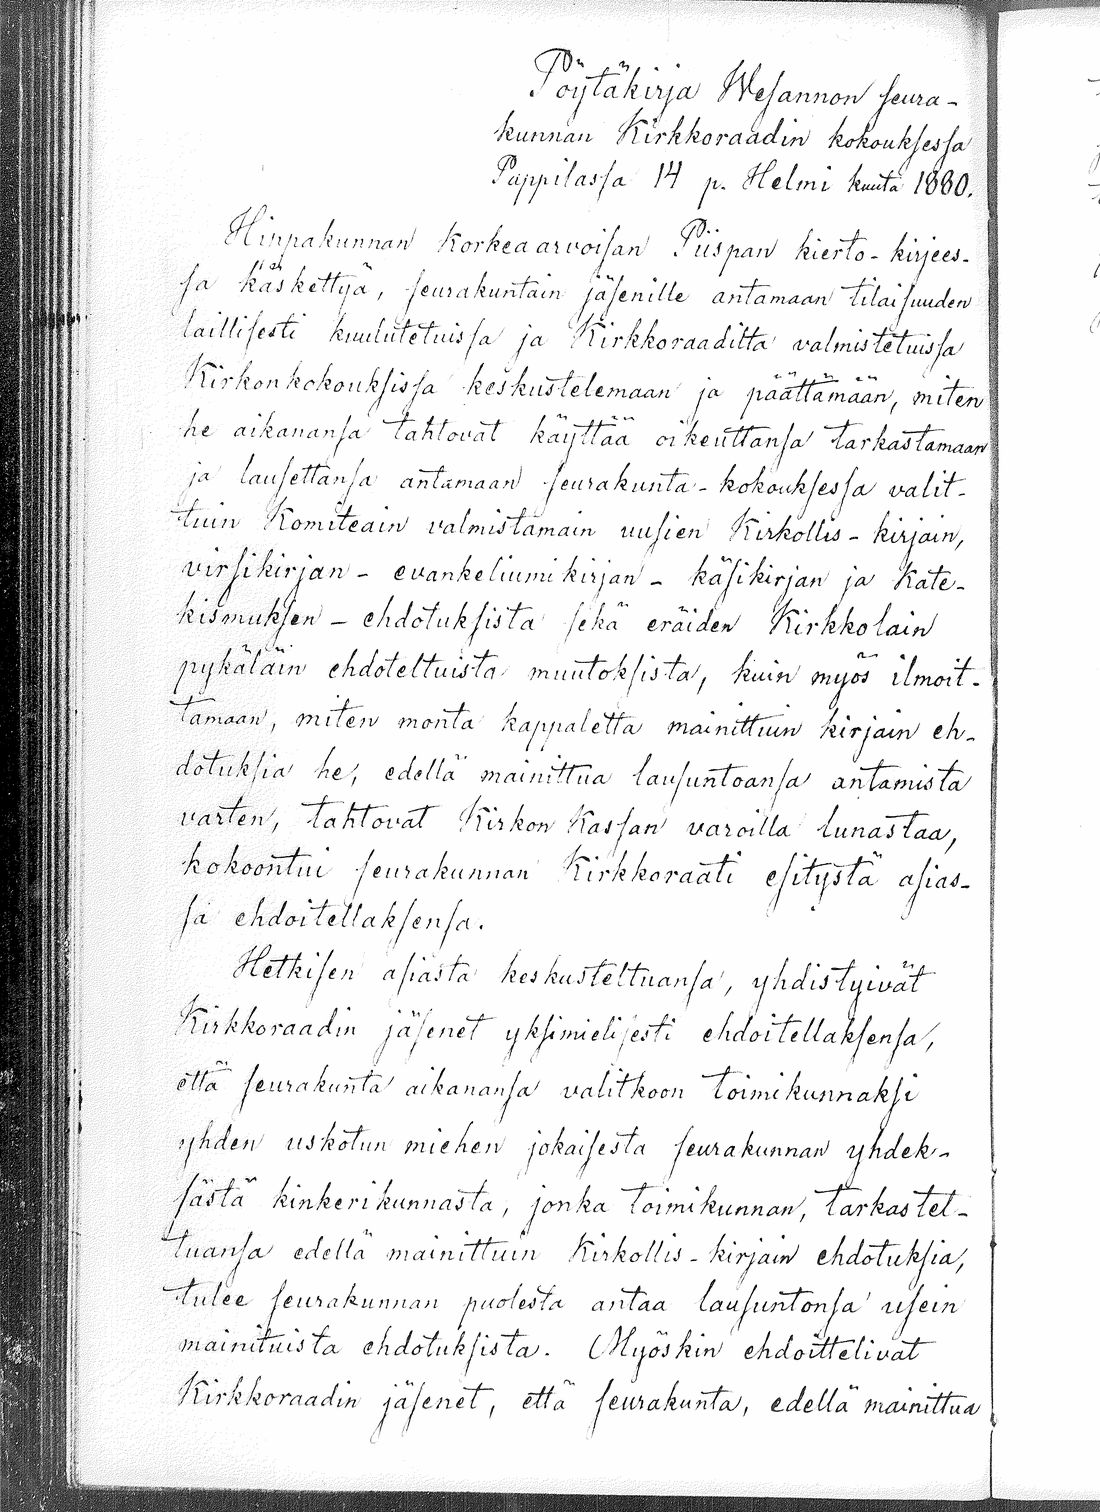 Pöytäkirja Wesannon seura-
kunnan Kirkkoraadin kokouksessa
Pappilassa 14 p. Helmi kuuta 1880.
Hippakunnan Korkeaarvoisan Piispan kierto-kirjees-
sa käskettyä, seurakuntain jäsenille antamaan tilaisuuden
laillisesti kuulutetuissa ja Kirkkoraadilta valmistetuissa
Kirkonkokouksissa keskustelemaan ja päättämään, miten
he aikanansa tahtovat käyttää oikeuttansa tarkastamaan
ja lausettansa antamaan seurakunta-kokouksessa valit-
tuin Komiteain valmistamain uusien Kirkollis-kirjain,
virsikirjan- evankeliumikirjan- käsikirjan ja Kate-
kismuksen-ehdotuksista sekä eräiden Kirkkolain
pykäläin ehdoteltuista muutoksista, kuin myös ilmoit-
tamaan, miten monta kappaletta mainittuin kirjain eh-
dotuksia he, edellä mainittua lausuntoansa antamista
varten, tahtovat Kirkon Kassan varoilla lunastaa,
kokoontui seurakunnan Kirkkoraati esitystä asias-
sa ehdoitellaksensa.
Hetkisen asiasta keskusteltuansa, yhdistyivät
Kirkkoraadin jäsenet yksimielisesti ehdoitellaksensa,
että seurakunta aikanansa valitkoon toimikunnaksi
yhden uskotun miehen jokaisesta seurakunnan yhdek-
sästä kinkerikunnasta, jonka toimikunnan, tarkastel-
tuansa edellä mainittuin Kirkollis-kirjain ehdotuksia,
tulee seurakunnan puolesta antaa lausuntonsa usein
mainituista ehdotuksista. Myöskin ehdoittelivat
Kirkkoraadin jäsenet, että seurakunta, edellä mainittua